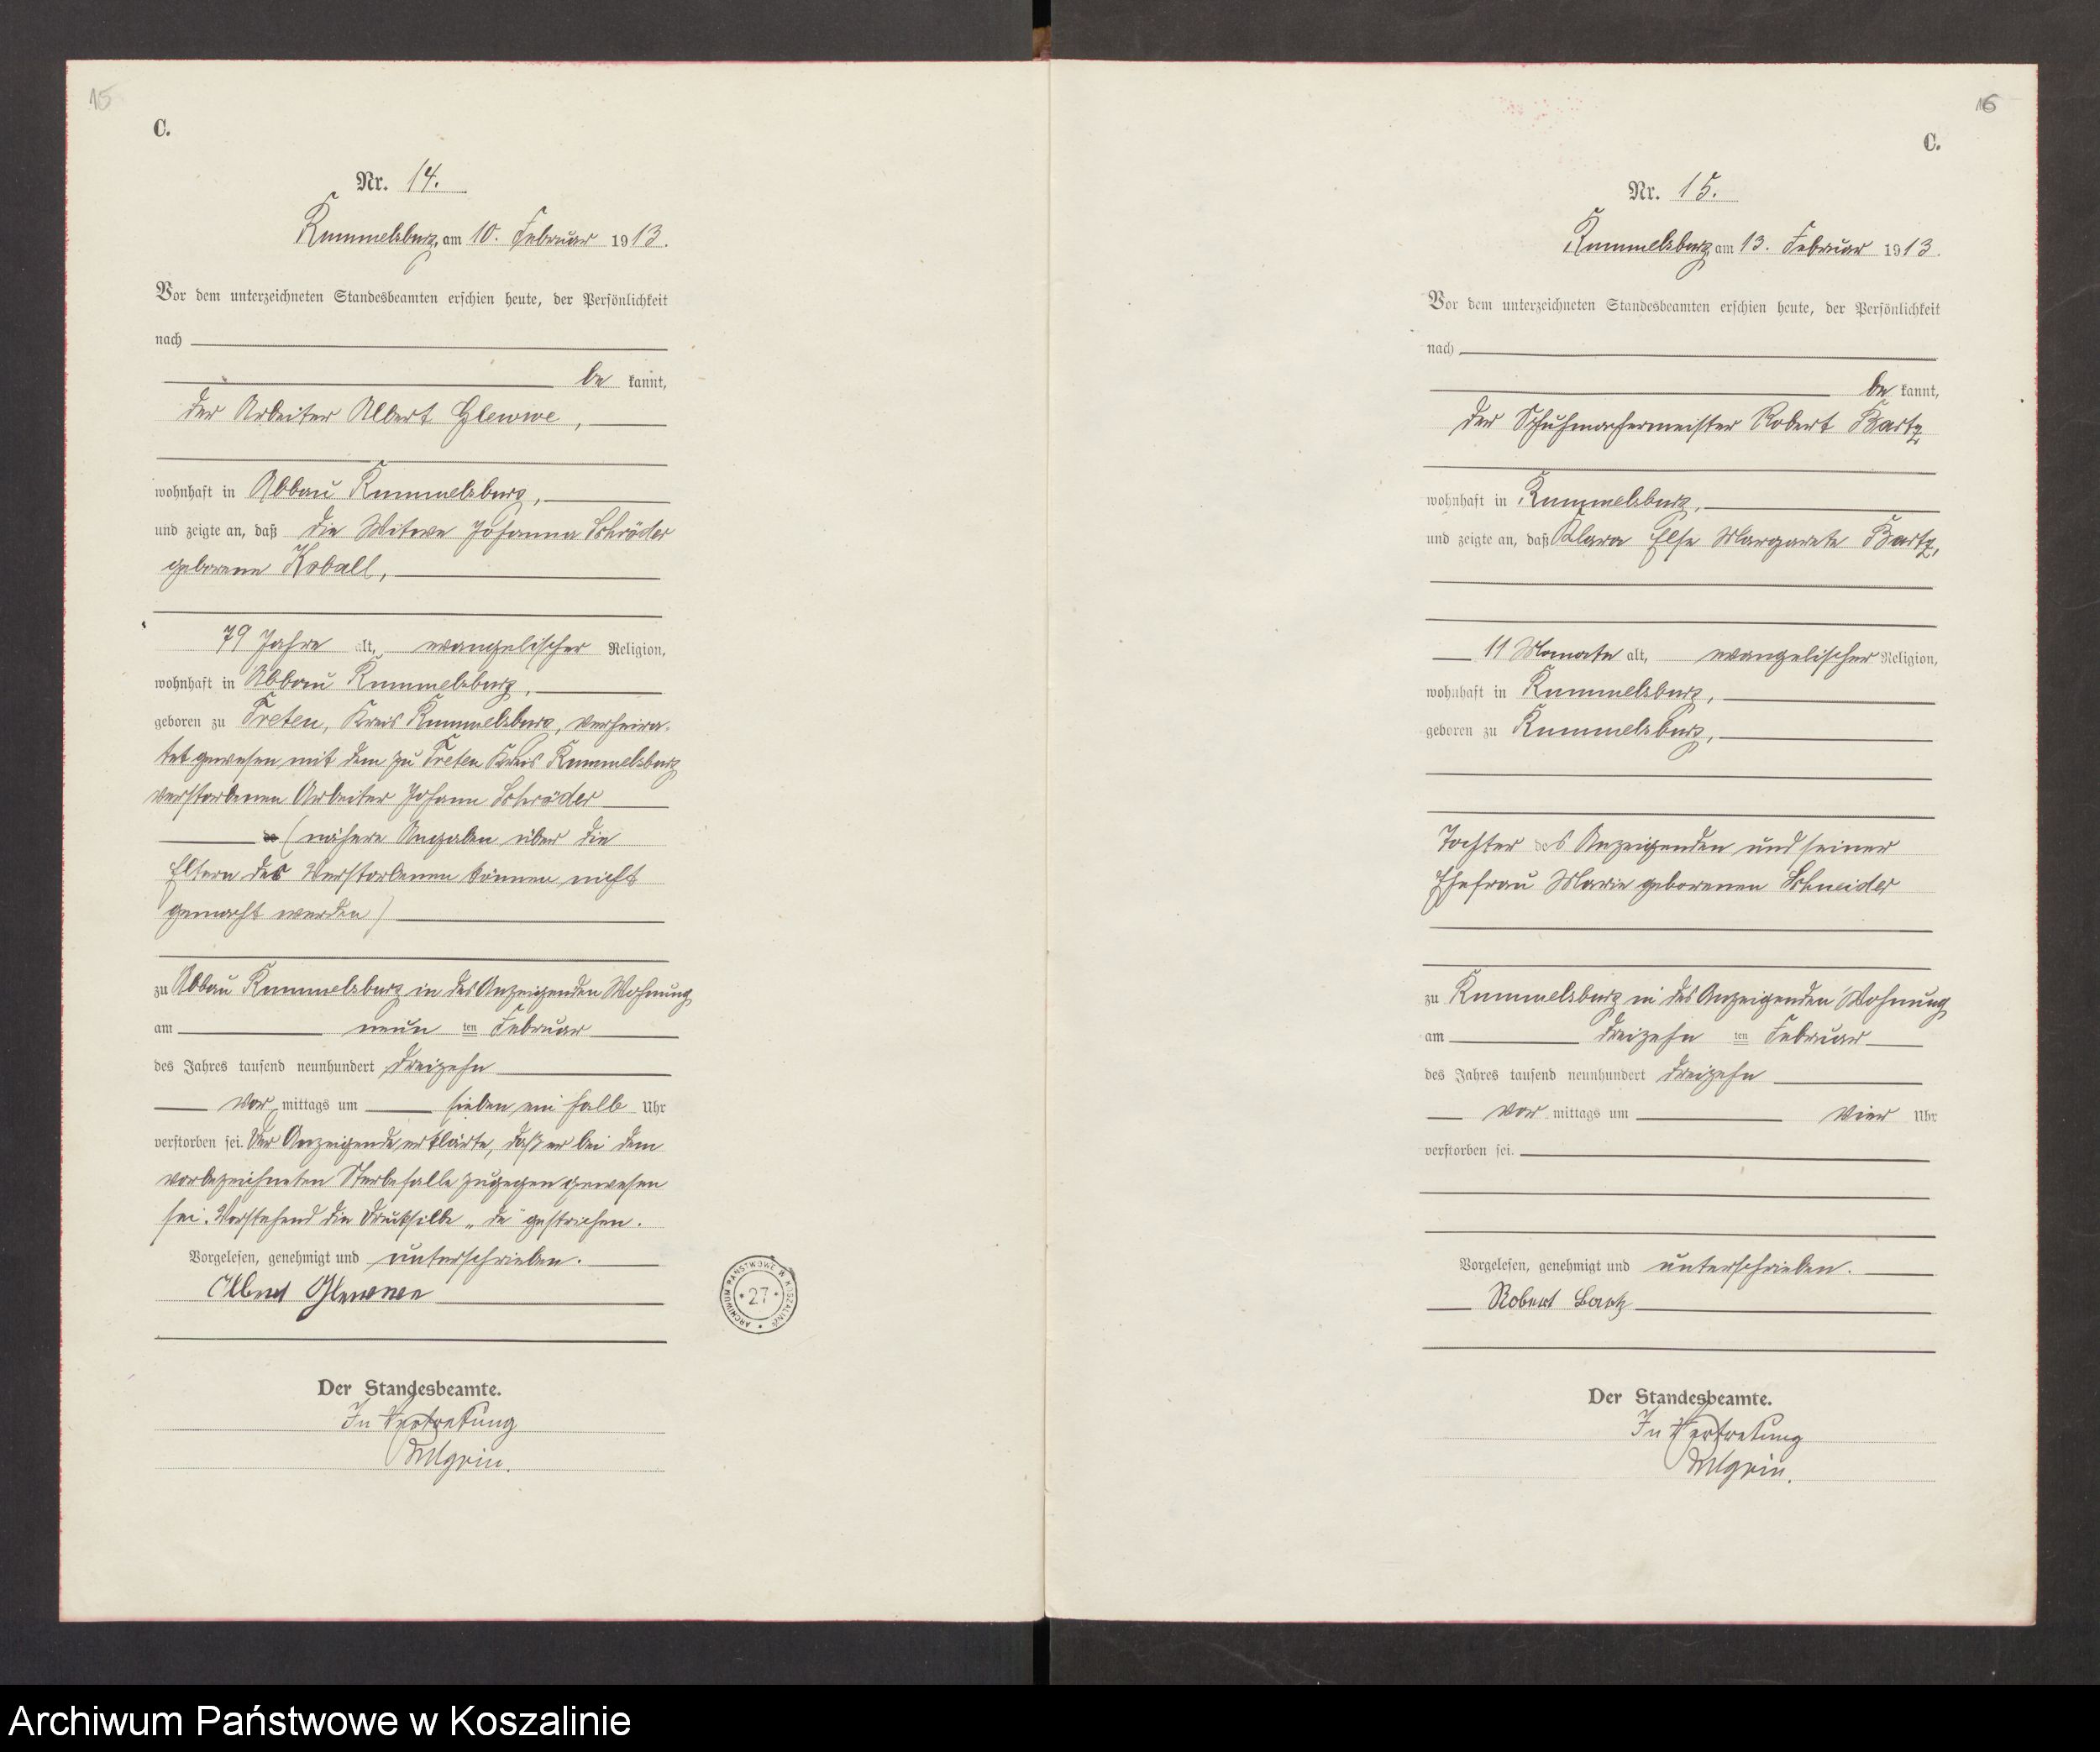 15
C.
Nr. 14.
Rummelsburg, am 10. Februar 1913.
Vor dem unterzeichneten Standesbeamten erschien heute, der Persönlichkeit
nach
be kannt,
der Arbeiter Albert Glewwe,
wohnhaft in Abbau Rummelsburg,
und zeigte an, daß die Witwe Johanna Schröder
geborene Koball,
79 Jahre alt, evangelischer Religion,
wohnhaft in Abbau Rummelsburg,
geboren zu Treten, Kreis Rummelsburg, verheira-
tet gewesen mit dem zu Treten Kreis Rummelsburg
verstorbenen Arbeiter Johann Schröder
(nähere Angaben über die
Eltern der Verstorbenen können nicht
gemacht werden)
zu Abbau Rummelsburg in des Anzeigenden Wohnung
am neun ten Februar
des Jahres tausend neunhundert dreizehn
Vor mittags um sieben ein halb Uhr
verstorben sei. Der Anzeigende erklärte, daß er bei dem
vorbezeichneten Sterbefalle zugegen gewesen
sei. Vorstehend die Drucksilbe „de" gestrichen.
Vorgelesen, genehmigt und unterschrieben.
Albert Glewwe
Der Standesbeamte.
In Vertretung
ARCHIWUM PAŃSTWOWE W KOSZALINIE
* 27 *
16
C.
Nr. 15.
Rummelsburg, am 13. Februar 1913.
Vor dem unterzeichneten Standesbeamten erschien heute, der Persönlichkeit
nach
be kannt,
der Schuhmachermeister Robert Bartz,
wohnhaft in Rummelsburg,
und zeigte an, daß Klara Else Margarete Bartz,
11 Monate alt, evangelischer Religion,
wohnhaft in Rummelsburg,
geboren zu Rummelsburg,
Tochter des Anzeigenden und seiner
Ehefrau Marie geborenen Schneider
zu Rummelsburg in des Anzeigenden Wohnung
am dreizehn ten Februar
des Jahres tausend neunhundert dreizehn
Vor mittags um vier Uhr
verstorben sei.
Vorgelesen, genehmigt und unterschrieben.
Robert Bartz
Der Standesbeamte.
In Vertretung
Archiwum Państwowe w Koszalinie